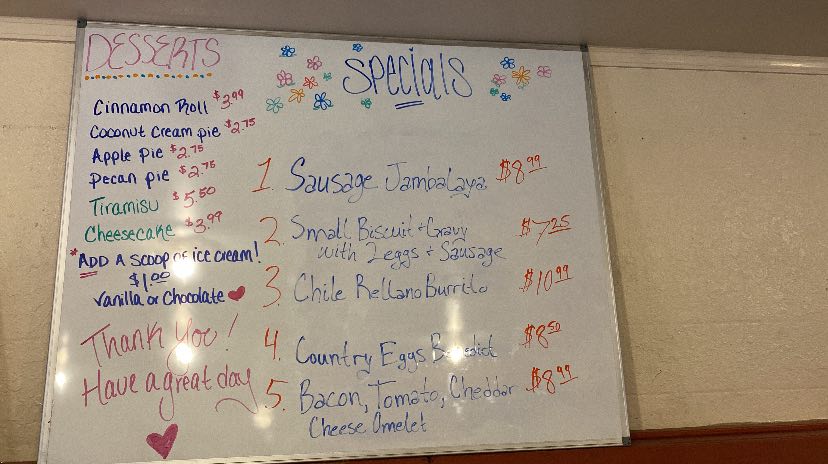 DESSERTS
Cinnamon Roll $3.99
Coconut Cream pie $2.75
Apple Pie $2.75
Pecan pie $2.75
Tiramisu $5.50
Cheesecake $3.99
*ADD A scoop of ice cream!
$1.00
Vanilla or Chocolate
Thank You!
Have a great day
Specials
1. Sausage Jambalaya $8.99
2. Small Biscuit + Gravy $7.25
with 2 eggs + Sausage
3. Chile Rellano Burrito $10.99
4. Country Eggs Benedict $8.50
5. Bacon, Tomato, Cheddar $8.99
Cheese Omelet